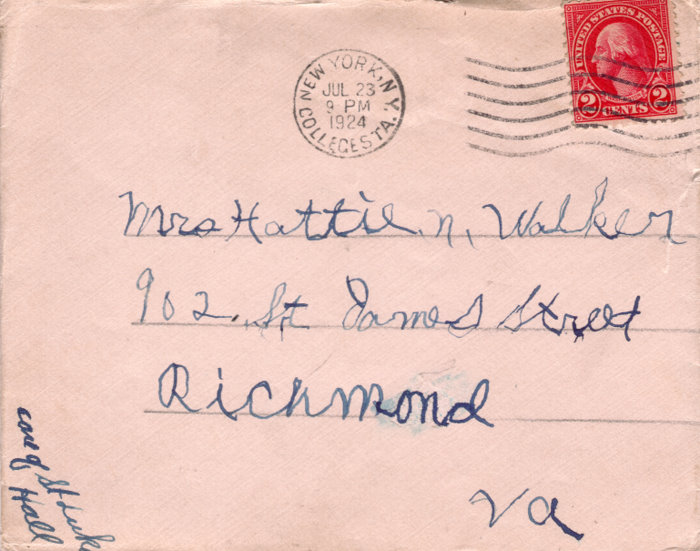 NEW YORK, N.Y.
JUL 23
9 PM
1924
COLLEGE STA.
UNITED STATES POSTAGE
2 CENTS 2
Mrs Hattie N. Walker
902. St James Street
Richmond
Va
care of St Luke
Hall